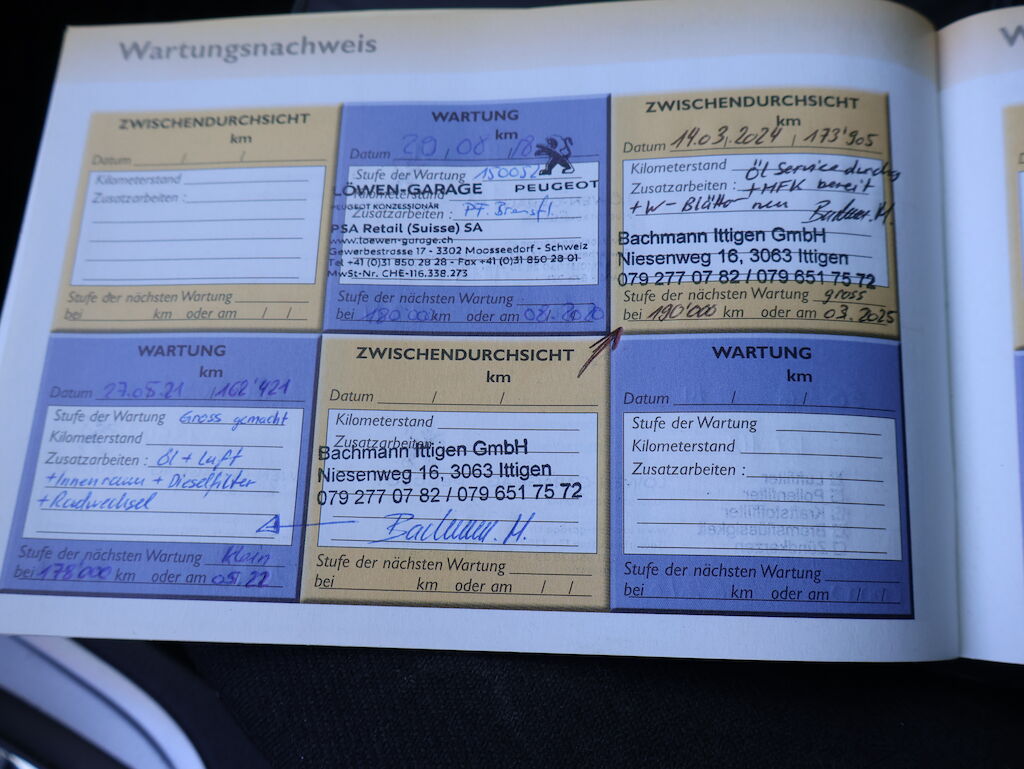 Wartungsnachweis
ZWISCHENDURCHSICHT
km
Datum / /
Kilometerstand
Zusatzarbeiten :
Stufe der nächsten Wartung
bei km oder am / /
WARTUNG
km
Datum 20, 08, 18
Stufe der Wartung 150052
Kilometerstand
LÖWEN-GARAGE PEUGEOT
PEUGEOT KONZESSIONÄR
Zusatzarbeiten : PF. Bremsfl.
PSA Retail (Suisse) SA
www.loewen-garage.ch
Gewerbestrasse 17 - 3302 Moosseedorf - Schweiz
Tel +41 (0)31 850 28 28 - Fax +41 (0)31 850 28 01
MwSt-Nr. CHE-116.338.273
Stufe der nächsten Wartung
bei 180'000 km oder am 2020
ZWISCHENDURCHSICHT
km
Datum 14.03.2024 , 173'905
Kilometerstand Öl Service durchg
Zusatzarbeiten : + MFK bereit
+ W-Blätter neu Bachmann.M.
Bachmann Ittigen GmbH
Niesenweg 16, 3063 Ittigen
079 277 07 82 / 079 651 75 72
Stufe der nächsten Wartung gross
bei 190'000 km oder am 03.2025
WARTUNG
km
Datum 27.05.21 , 162'421
Stufe der Wartung Gross gemacht
Kilometerstand
Zusatzarbeiten : Öl + Luft
+ Innenraum + Dieselfilter
+ Radwechsel
Stufe der nächsten Wartung Klein
bei 178'000 km oder am 05.22
ZWISCHENDURCHSICHT
km
Datum / /
Kilometerstand
Zusatzarbeiten:
Bachmann Ittigen GmbH
Niesenweg 16, 3063 Ittigen
079 277 07 82 / 079 651 75 72
Bachmann. M.
Stufe der nächsten Wartung
bei km oder am / /
WARTUNG
km
Datum / /
Stufe der Wartung
Kilometerstand
Zusatzarbeiten :
Stufe der nächsten Wartung
bei km oder am / /
W